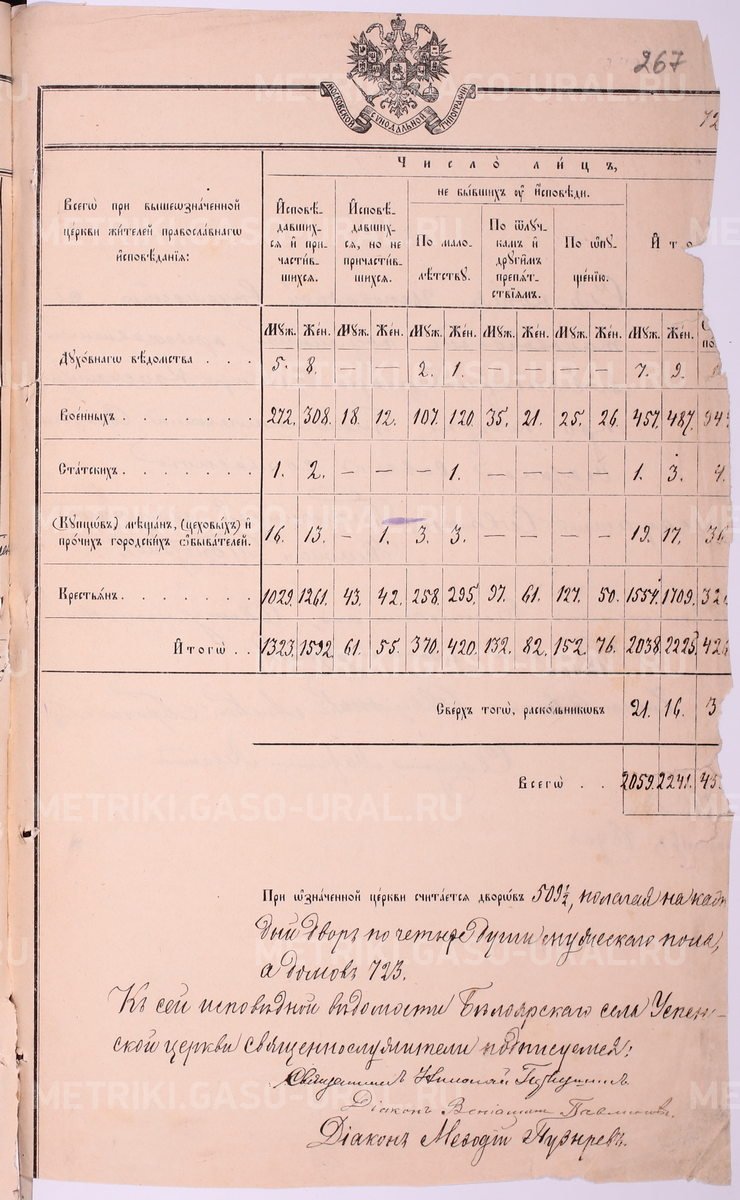 267
МОСКОВСКОЙ СѴНОДАЛЬНОЙ ТИПОГРАФІИ
72
Число̀ ли́цъ,
Всегѡ̀ при вышеѡзна́ченной
це́ркви жи́телей правосла́внагѡ
и҆сповѣ́данїѧ:
И҆сповѣ́-
давших-
сѧ и҆ при-
части́в-
шихсѧ.
И҆сповѣ́-
давших-
сѧ, но не
причасти́в-
шихсѧ.
не бы́вшихъ ᲂу҆ и҆́сповѣди.
По мало-
лѣ́тству.
По ѿлꙋ́ч-
камъ и҆
други́мъ
препѧ́т-
ствїѧмъ.
По ѡ҆пꙋ-
ще́нїю.
И҆ т о
Мꙋж. Же́н. Мꙋж. Же́н. Мꙋж. Же́н. Мꙋж. Же́н. Мꙋж. Же́н. Мꙋж. Же́н.
Дꙋхо́внагѡ вѣ́домства . . . 5. 8. — — 2. 1. — — — — 7. 9.
Вое́нныхъ . . . . . . . 272. 308. 18. 12. 107. 120. 35. 21. 25. 26. 457. 487. 94
Ста́тскихъ . . . . . . . 1. 2. — — — 1. — — — — 1. 3. 4.
(Кꙋпцѡ́въ,) мѣща́нъ, (цехоовы́хъ) и҆
про́чихъ городски́хъ ѡ҆быва́телей. 16. 13. — 1. 3. 3. — — — — 19. 17. 36
Крестьѧ́нъ . . . . . . . 1029. 1261. 43. 42. 258. 295. 97. 61. 127. 50. 1554. 1709. 326
И҆того̀ . . 1323. 1592. 61. 55. 370. 420. 132. 82. 152. 76. 2038. 2225. 426
Све́рхъ тогѡ̀, раско́льникѡвъ 21. 16. 3
Всегѡ̀ . . 2059. 2241. 43
При ѡ҆зна́ченной це́ркви счита́етсѧ дворѡ́въ 509½, полагая на каж-
дый дворъ по четыре души мужескаго пола,
а домовъ 723.
Къ сей исповѣдной вѣдомости Бѣлоярскаго села Успен-
ской церкви священнослужители подписуемся:
Священникъ Николай
Діаконъ Веніаминъ
Діаконъ Меѳодій Пузыревъ.
METRIKI.GASO-URAL.RU